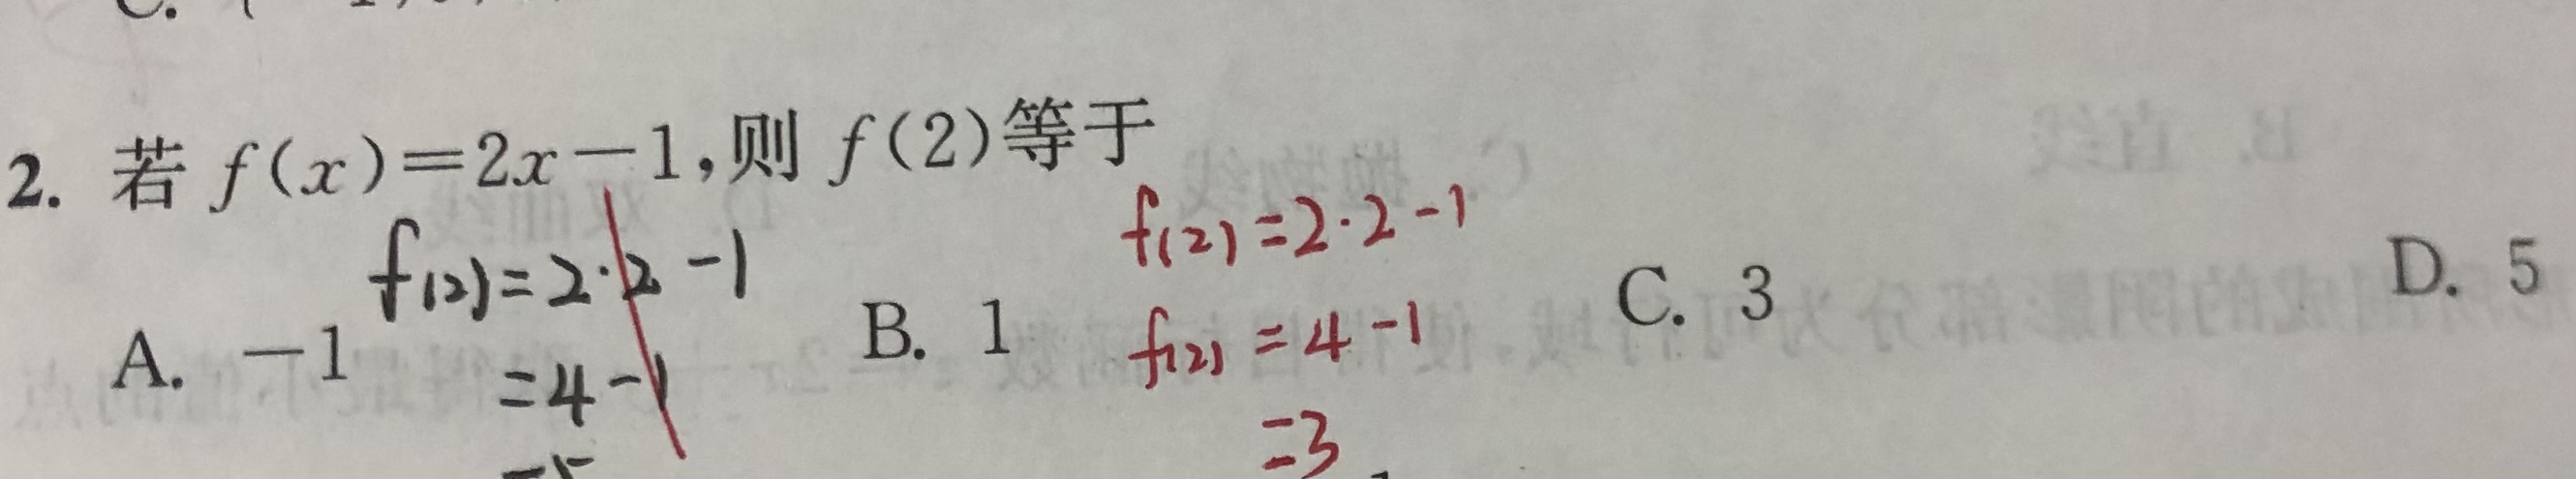 2. 若 f(x)=2x-1,则 f(2)等于
f(2)=2·2-1
f(2)=2·2-1
A. -1
B. 1
C. 3
D. 5
=4-1
f(2)=4-1
=3